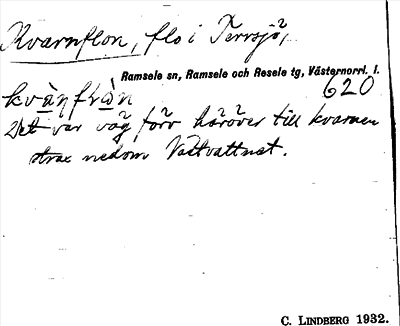 Kvarnflon, flo i Terrsjö,
Ramsele sn, Ramsele och Resele tg, Västernorrl. l.
620
Det var väg förr häröver till kvarnen
strax nedom Vättvattnet.
C. LINDBERG 1932.